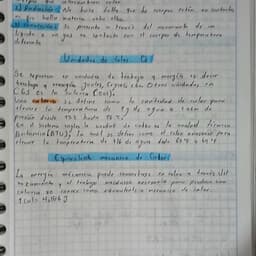 que intercambian calor.
2) Radiación: No hace falta que los cuerpos estén en contacto
ni que halla materia entre ellos.
3) Convección: Se presenta a través del movimiento de un
líquido o un gas en contacto con el cuerpo de temperatura
diferente.
Unidades de calor Q
Se representa en unidades de trabajo y energía es decir
trabajo y energía Joules,
CGS es la caloría (cal).
Una caloría se define como la cantidad de calor para
elevar la temperatura de 1g de agua a 1 atm de
presión desde
En el sistema inglés la unidad de calor es la unidad térmica
Británica (BTU), la cual se define como el calor necesario para
elevar la temperatura de 1lb de agua
Equivalente mecánico de Calor
La energía mecánica puede convertirse en calor a través del
rozamiento y el trabajo mecánico necesario para producir una
caloría se conoce como equivalente mecánico de calor.